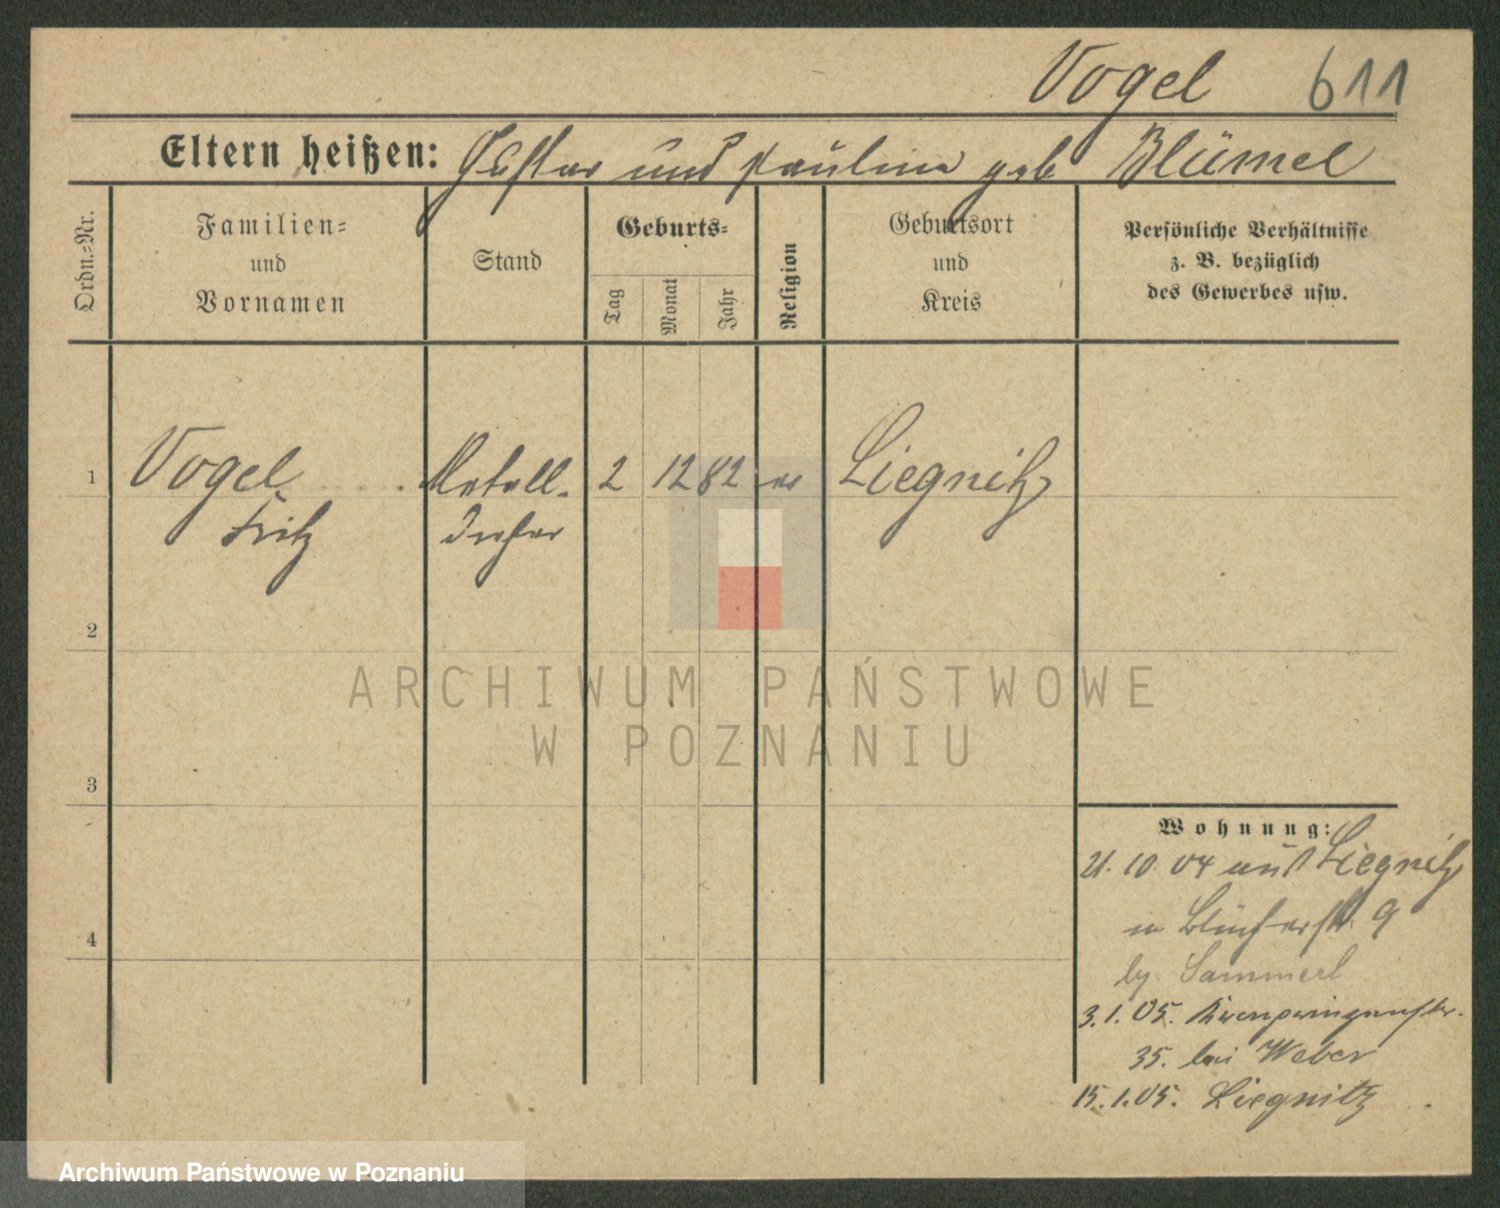 Vogel 611
Eltern heißen: Gustav und Pauline geb Blümel
Ordn.-Nr.
Familien-
und
Vornamen
Stand
Geburts-
Tag
Monat
Jahr
Religion
Geburtsort
und
Kreis
Persönliche Verhältnisse
z. B. bezüglich
des Gewerbes usw.
1 Vogel Metall- 2 12 82 ev Liegnitz
Fritz dreher
2
3
4
Wohnung:
10 04 aus Liegnitz
in Blücherstr 9
by.
3.1.05. Kronprinzenstr.
35. bei Weber
15.1.05. Liegnitz
ARCHIWUM PAŃSTWOWE
W POZNANIU
Archiwum Państwowe w Poznaniu